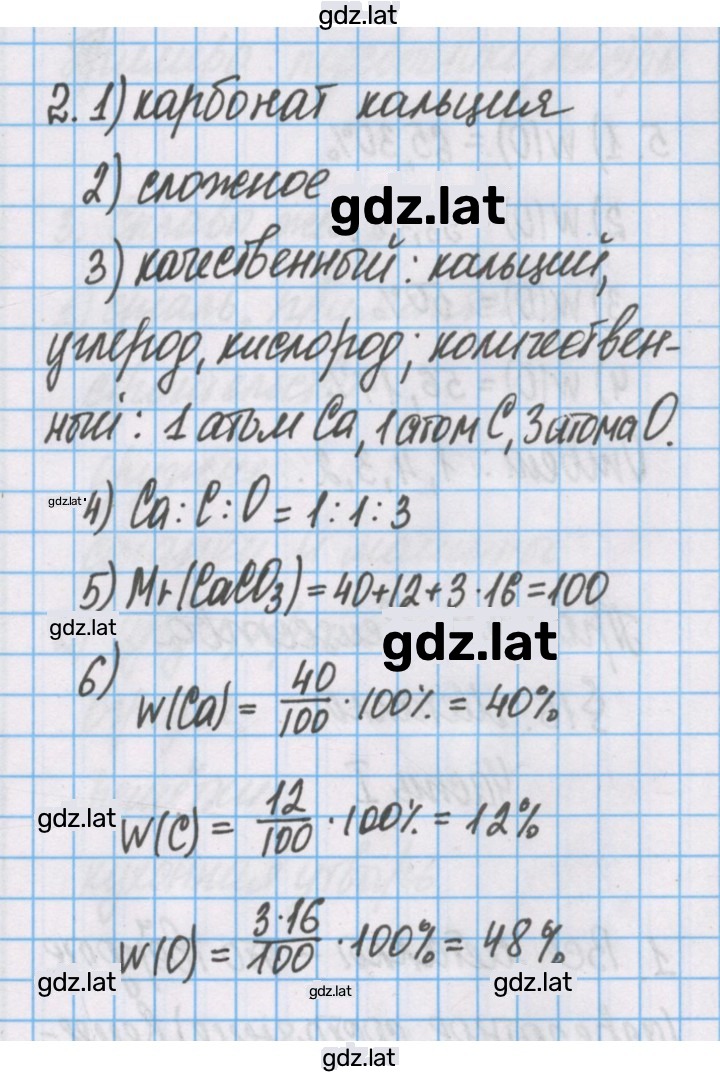 gdz.lat
2. 1) карбонат кальция
2) сложное
gdz.lat
3) качественный: кальций,
углерод, кислород; количествен-
ный: 1 атом Ca, 1 атом C, 3 атома O.
gdz.lat
4) Ca : C : O = 1 : 1 : 3
5) Mr(CaCO₃) = 40+12+3·16=100
gdz.lat
gdz.lat
6)
W(Ca) = 40/100 · 100% = 40%
gdz.lat
W(C) = 12/100 · 100% = 12%
W(O) = 3·16/100 · 100% = 48%
gdz.lat
gdz.lat
gdz.lat
gdz.lat